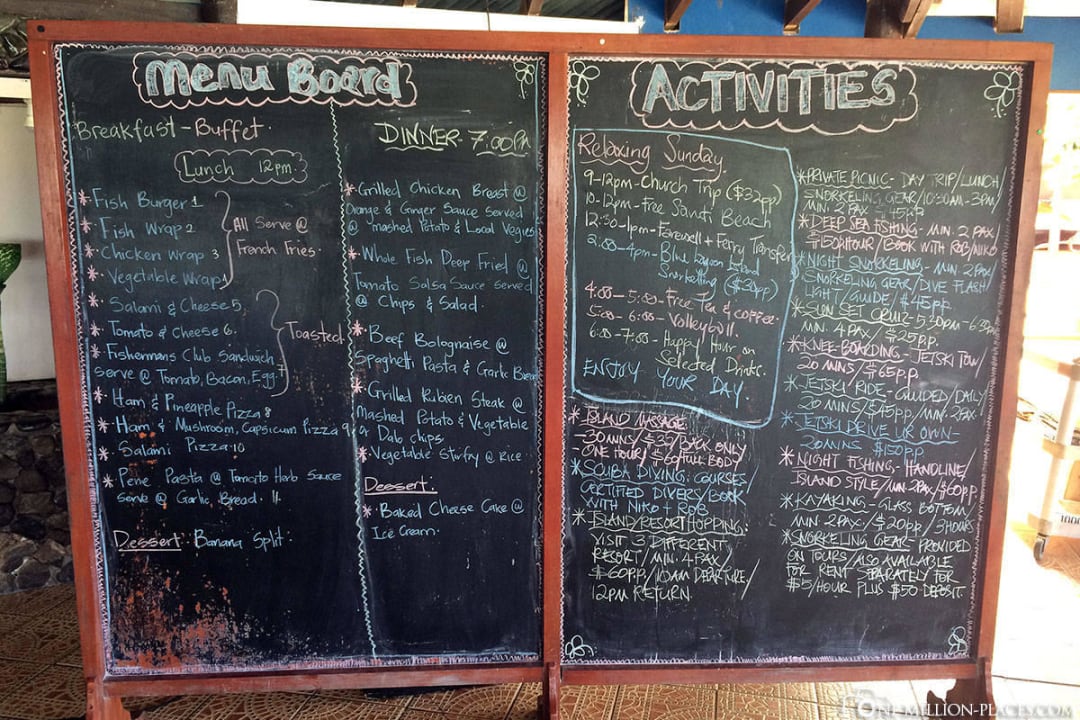 Menu Board
Breakfast - Buffet.
Lunch 12pm.
* Fish Burger 1
* Fish Wrap 2
* Chicken Wrap 3
* Vegetable Wrap
All Serve @
French Fries.
* Salami & Cheese 5
* Tomato & Cheese 6.
* Fishermans Club Sandwich
serve @ Tomato, Bacon, Egg. 7
Toasted
* Ham & Pineapple Pizza 8
* Ham & Mushroom, Capsicum Pizza 9
* Salami Pizza 10
* Pene Pasta @ Tomato Herb Sauce
serve @ Garlic Bread. 11.
Dessert: Banana Split.
DINNER 7.00PM
* Grilled Chicken Breast @
Orange & Ginger Sauce Served
@ mashed Potato & Local Vegies
* Whole Fish Deep Fried @
Tomato Salsa Sauce served
@ Chips & Salad.
* Beef Bolognaise @
Spaghetti Pasta & Garlic Bread
* Grilled Rubien Steak @
Mashed Potato & Vegetable
or Dalo chips.
* Vegetable Stirfry @ Rice.
Dessert:
* Baked Cheese Cake @
Ice Cream.
ACTIVITIES
Relaxing Sunday.
9-12pm-Church Trip ($32pp)
10-12pm-Free Beach
12:30-1pm-Farewell + Ferry Transfer
2:00-4pm-Blue Lagoon Island
Snorkelling ($30pp)
4:00-5:00-Free Tea & coffee
5:00-6:00-Volleyball.
6:00-7:00-Happy Hour on
Selected Drinks.
ENJOY YOUR DAY.
* ISLAND MASSAGE
-30 MINS/$35/BACK ONLY
ONE HOUR/$60/FULL BODY
* SCUBA DIVING: COURSES/
CERTIFIED DIVERS/BOOK
WITH NIKO + ROB
* ISLAND/RESORT HOPPING:
VISIT 3 DIFFERENT
RESORT/MIN 4 PAX/
$60PP/10AM DEPARTURE/
12PM RETURN.
* PRIVATE PICNIC- DAY TRIP/LUNCH
SNORKELING GEAR/10:30AM-3PM/
MIN. 2 PAX $45pp.
* DEEP SEA FISHING- MIN. 2 PAX/
$150/HOUR/BOOK WITH ROB/NIKO
* NIGHT SNORKELING- MIN 2 PAX/
SNORKELING GEAR/DIVE FLASH
LIGHT/GUIDE/$45pp.
* SUN SET CRUIZ-5:30PM-6:30PM
MIN. 4 PAX/$25pp.
* KNEE-BOARDING- JETSKI TOW/
20 MINS/$65P.P.
* JETSKI RIDE- GUIDED/DAILY
20 MINS/$45pp/MIN-2PAX/
* JETSKI DRIVE UR OWN-
20MINS $150pp.
* NIGHT FISHING- HANDLINE/
ISLAND STYLE/MIN-2PAX/$60pp.
* KAYAKING- GLASS BOTTOM/
MIN 2PAX/$20pp/3HOURS
* SNORKELING GEAR- PROVIDED
ON TOURS/ALSO AVAILABLE
FOR RENT SEPARATELY FOR
$5/HOUR PLUS $50 DEPOSIT.
ONEMILLION-PLACES.COM